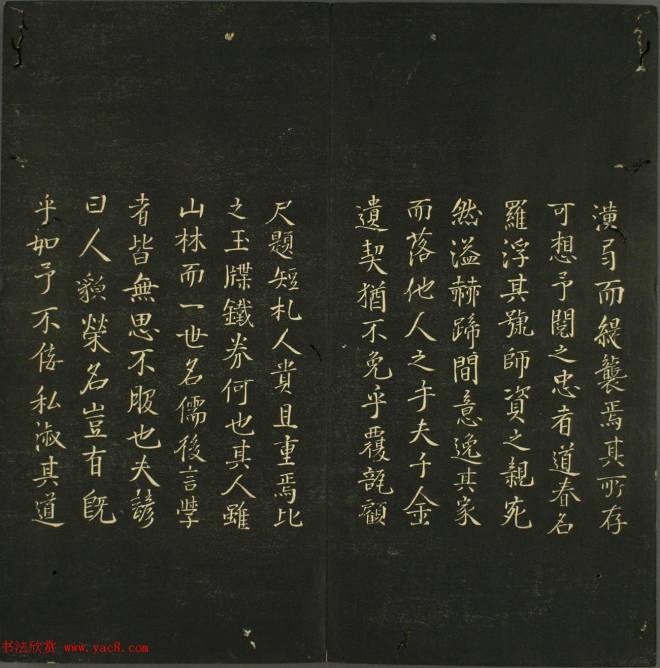 潢局而緹襲焉其所存
可想予閱之忠者道春名
羅浮其號師資之親宛
然溢赫蹏間意逸其家
而落他人之手夫千金
遺契猶不免乎覆瓿顧
尺題短札人貴且重焉比
之玉牒鐵券何也其人雖
山林而一世名儒後言學
者皆無思不服也夫諺
曰人貌榮名豈有既
乎如予不佞私淑其道
书法欣赏 www.yac8.com